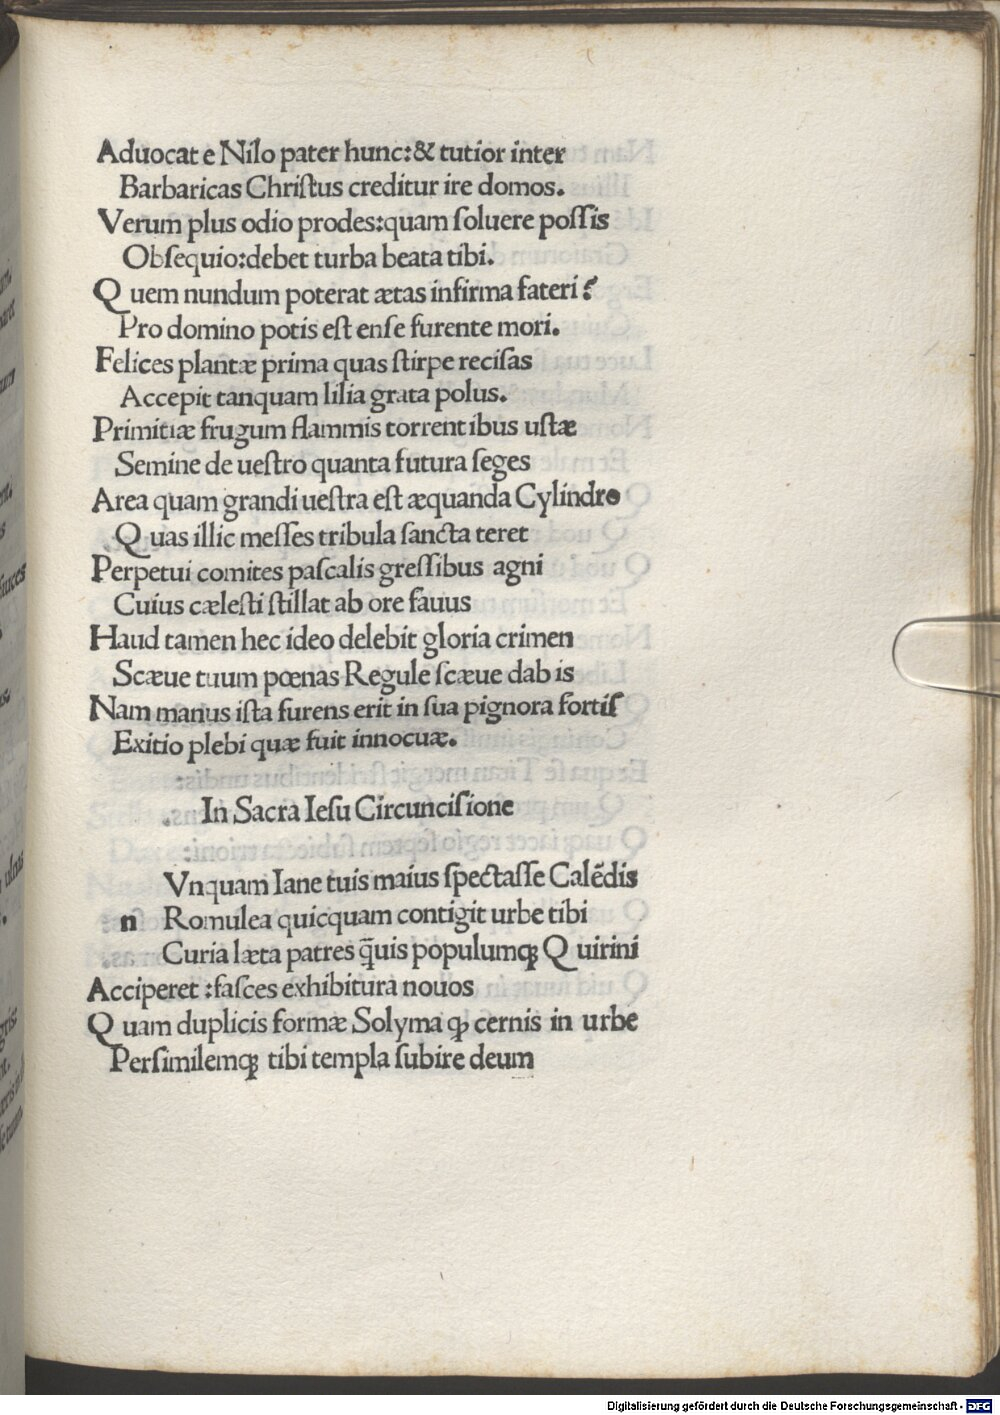 Aduocat e Nilo pater hunc:& tutior inter
Barbaricas Chriſtus creditur ire domos.
Verum plus odio prodes:quam ſoluere poſſis
Obſequio:debet turba beata tibi.
Q uem nundum poterat ætas infirma fateri?
Pro domino potis eſt enſe furente mori.
Felices plantæ prima quas ſtirpe reciſas
Accepit tanquam lilia grata polus.
Primitiæ frugum flammis torrent ibus uſtæ
Semine de ueſtro quanta futura ſeges
Area quam grandi ueſtra eſt æquanda Cylindro
Q uas illic meſſes tribula ſancta teret
Perpetui comites paſcalis greſſibus agni
Cuius cæleſti ſtillat ab ore fauus
Haud tamen hec ideo delebit gloria crimen
Scæue tuum pœnas Regule ſcæue dab is
Nam manus iſta furens erit in ſua pignora fortiſ
Exitio plebi quæ fuit innocuæ.
In Sacra Ieſu Circunciſione
Vnquam Iane tuis maius ſpectaſſe Calēdis
n Romulea quicquam contigit urbe tibi
Curia læta patres q̄uis populumqꝫ Q uirini
Acciperet :faſces exhibitura nouos
Q uam duplicis formæ Solyma qꝫ cernis in urbe
Perſimilemqꝫ tibi templa ſubire deum
Digitalisierung gefördert durch die Deutsche Forschungsgemeinschaft - DFG